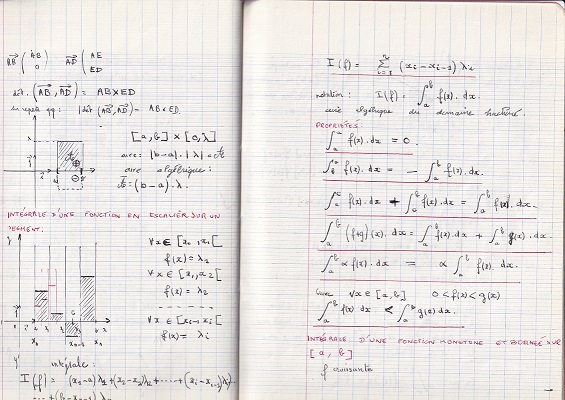 AB ( AB
0
AD ( AE
ED
dét. (AB, AD) = AB×ED
|dét (AB, AD)| = AB × ED
[a, b] × [0, λ]
aire: |b-a|.|λ| =
aire algébrique:
= (b-a).λ.
INTÉGRALE D'UNE FONCTION EN ESCALIER SUR UN
SEGMENT.
∀x ∈ [x0, x1[
f(x) = λ1
∀x ∈ [x1, x2[
f(x) = λ2
f(x) = λi
intégrale:
I(f) = (x1-a)λ1 + (x2-x1)λ2 + ..... + (xi-xi-1)λi
I(f) = Σ (xi - xi-1) λi
notation: I(f) = ∫ab f(x).dx.
aire algébrique du domaine hachuré.
PROPRIÉTÉS:
∫aa f(x).dx = 0.
f(x).dx = - ∫ab f(x).dx.
f(x).dx + f(x).dx = ∫ab f(x).dx.
∫ab (f+g)(x).dx = ∫ab f(x).dx + ∫ab g(x).dx.
∫ab αf(x).dx = α ∫ab f(x).dx.
∀x ∈ [a, b] 0 < f(x) < g(x)
∫ab f(x) dx < ∫ab g(x) dx.
INTÉGRALE D'UNE FONCTION MONOTONE ET BORNÉE SUR
[a, b]
f croissante